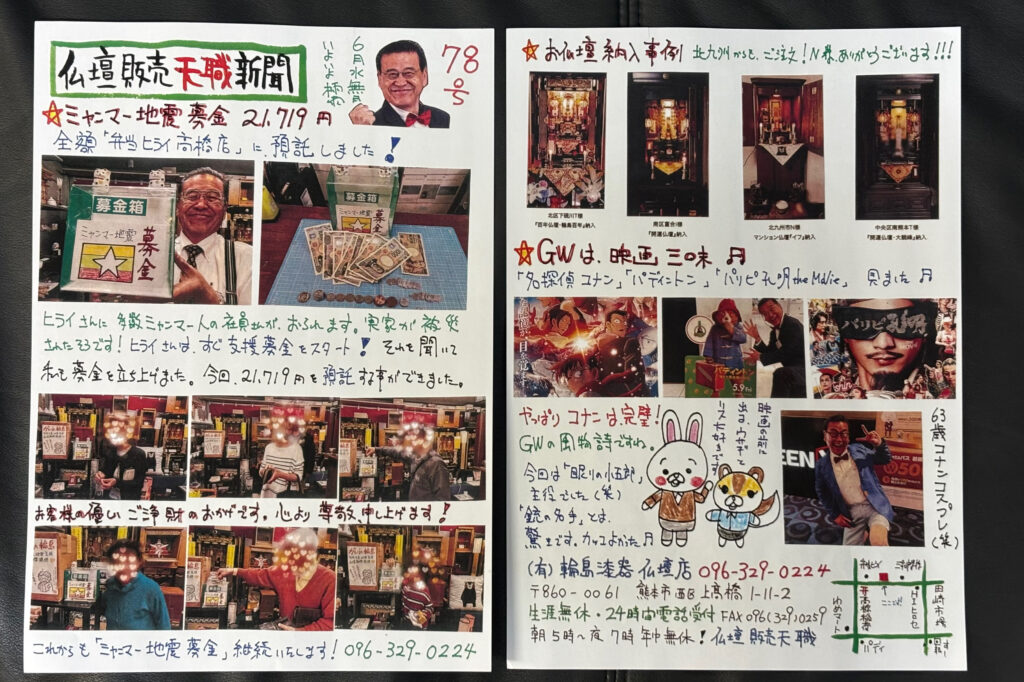 仏壇販売天職新聞
6月水無月
78号
☆ミャンマー地震募金 21,719円
全額「弁当ヒライ高橋店」に、預託しました!
募金箱
ミャンマー地震
募金
募金箱
ミャンマー地震
ヒライさんに多数ミャンマー人の社員さんが、おられます。実家が被災
されたそうです!ヒライさんは、すぐ支援募金をスタート!それを聞いて
私も募金を立ち上げました。今回、21,719円を預託す事ができました。
お客様の優しいご浄財のおかげです。心より尊敬申し上げます!
これからも「ミャンマー地震募金」継続いたします!096-329-0224
☆お仏壇納入事例 北九州からも、ご注文!N様、ありがとうございます!!!
北区下硯川T様
『百年仏壇・輪島百年』納入
南区富合I様
『開運仏壇』納入
北九州市N様
マンション仏壇『イフ』納入
中央区南熊本T様
『開運仏壇・大銀緑』納入
☆GWは、映画三昧♬
「名探偵コナン」「パディントン」「パリピ孔明the Movie」見ました♬
パディントン
5.9
パリピ孔明
やっぱりコナンは完璧!
GWの風物詩ですね。
今回は「眠りの小五郎」
主役でした(笑)
「銃の名手」とは、
驚きです。カッコよかった♬
映画の前に
出る、ウサギと
リス大好きです
63歳コナンコスプレ(笑)
(有)輪島漆器仏壇店 096-329-0224
〒860-0061 熊本市西区上高橋1-11-2
生涯無休・24時間電話受付 FAX 096(329)0259
朝5時〜夜7時 年中無休!仏壇販売天職
ゆめマート
田崎市場
パティ